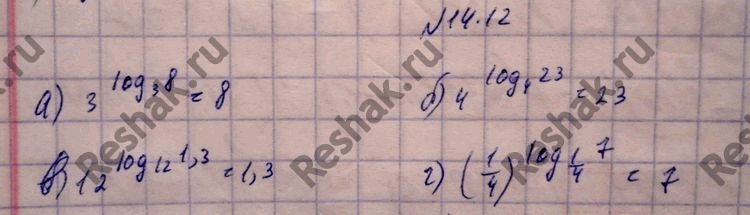 №14.12
а) 3^log₃8 = 8 б) 4^log₄23 = 23
в) 12^log₁₂1,3 = 1,3 г) (1/4)^log_1/4 7 = 7
Reshak.ru
Reshak.ru
Reshak.ru
Reshak.ru